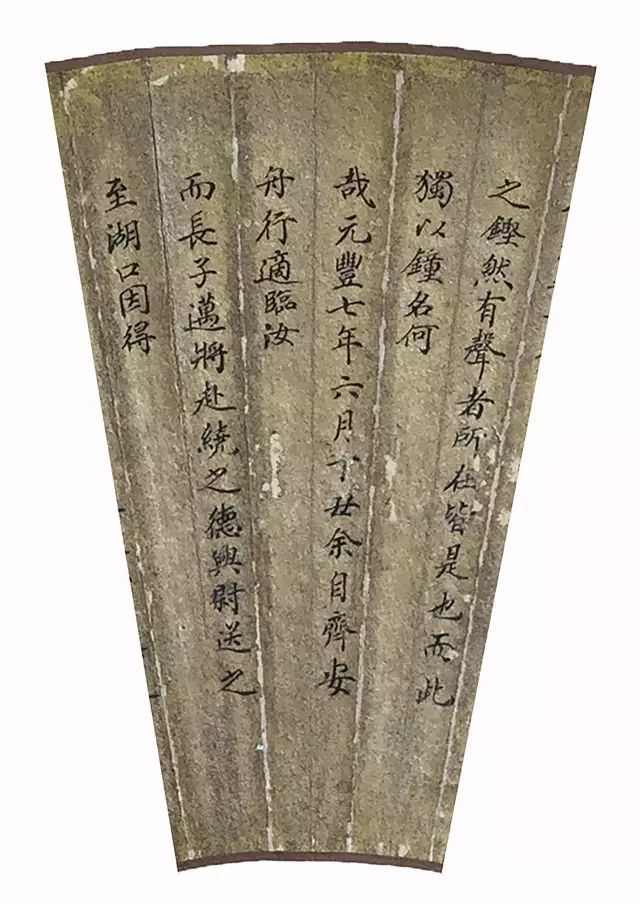 之鏗然有聲者所在皆是也而此
獨以鐘名何
哉元豐七年六月丁丑余自齊安
舟行適臨汝
而長子邁將赴繞之德興尉送之
至湖口因得